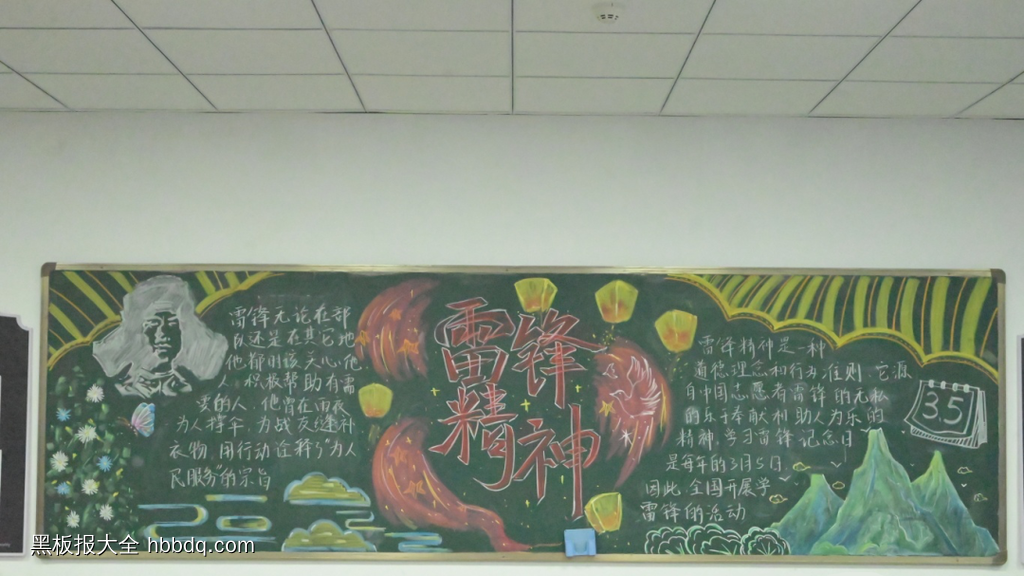 雷锋无论在部
队还是在其它地
他都用该关心他
人 积极帮助有需
要的人 他曾在雨夜
为人 为战友缝补
衣物 用行动诠释了"为人
民服务"的宗旨
雷锋
精神
雷锋精神是一种
道德理念和行为准则 它源
自中国志愿者雷锋的无私
乐于奉献和助人为乐的
精神 学习雷锋纪念日
是每年的3月5日
因此 全国开展学
雷锋的活动
35
黑板报大全 hbbdq.com